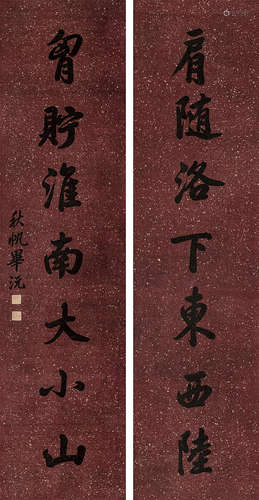 肩随洛下東西陸
胷貯淮南大小山
秋帆畢沅